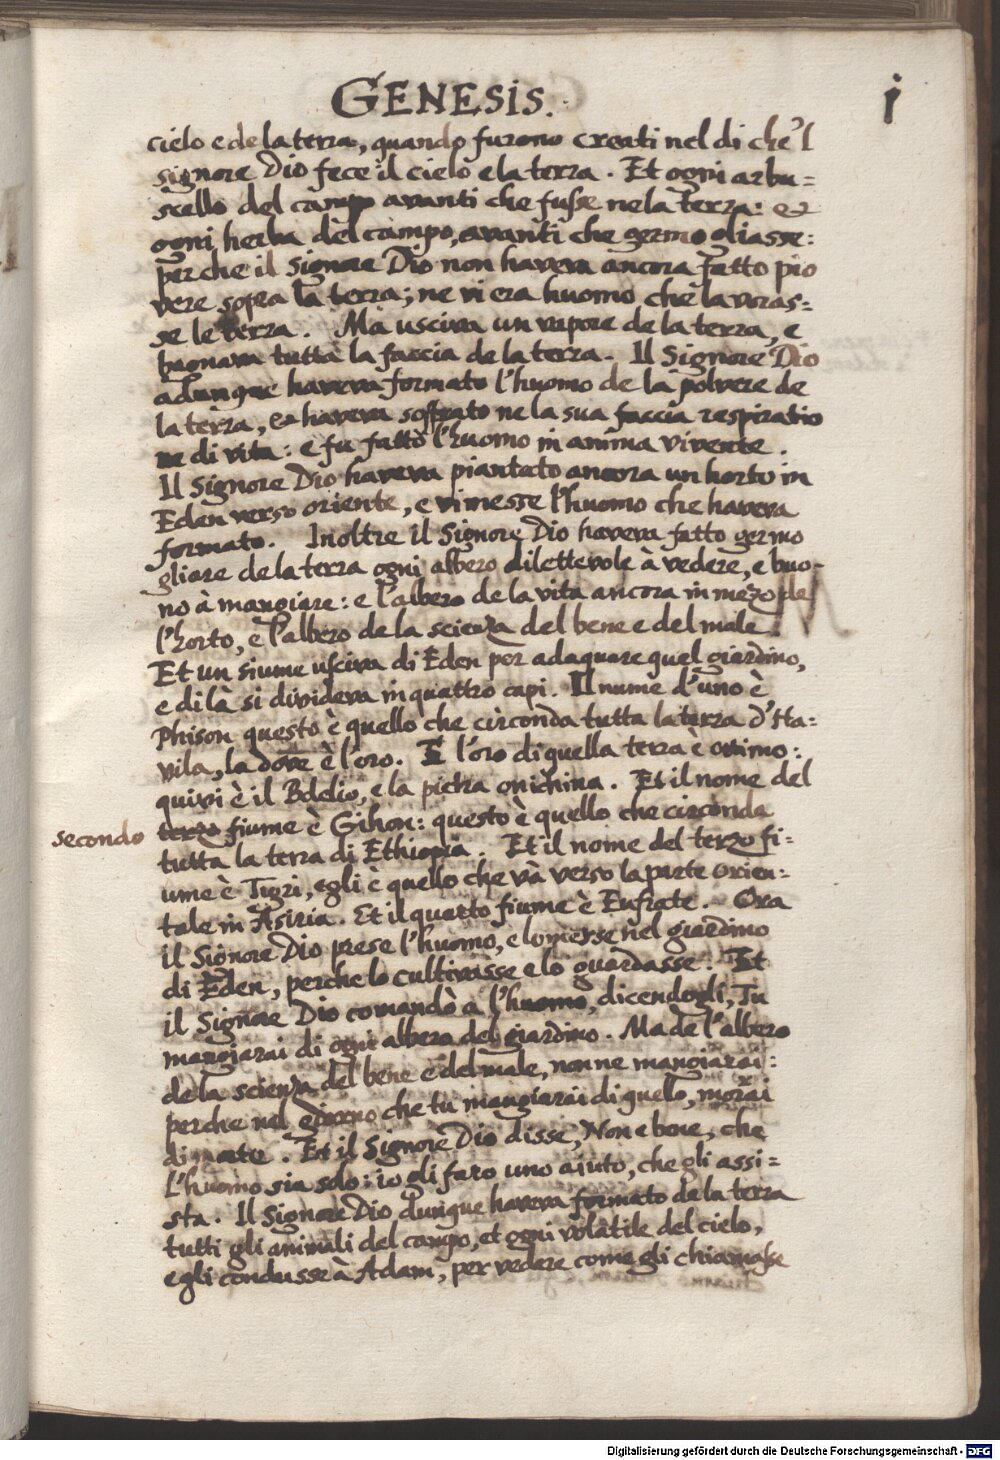 GENESIS.
i
cielo e de la terra, quando furono creati nel di che'l
signore Dio fece il cielo e la terra. Et ogni arbu=
scello del campo avanti che fusse ne la terra: et
ogni herba del campo, avanti che germogliasse:
perche il Signore Dio non haveva ancora fatto pio
vere sopra la terra; ne vi era huomo che lavoras=
se le terra. Ma usciva un vapore de la terra, e
bagnava tutta la faccia de la terra. Il Signore Dio
adunque haveva formato l'huomo de la polvere de
la terra, et haveva soffiato ne la sua faccia respiratio
ne di vita: e fu fatto l'huomo in anima vivente.
Il Signore Dio haveva piantato ancora un horto in
Eden verso oriente, e vi messe l'huomo che haveva
formato. Inoltre il Signore Dio haveva fatto germo
gliare de la terra ogni albero dilettevole à vedere, e buo-
no à mangiare: e l'albero de la vita ancora in mezo del
l'horto, e l'albero de la scienza del bene e del male.
Et un fiume usciva di Eden per adaquare quel giardino,
e di là si divideva in quattro capi. Il nume d'uno è
Phison questo è quello che circonda tutta la terra d'Ha=
vila, la dove è l'oro. E l'oro di quella terra è ottimo:
quivi è il Bdelio, e la pietra onichina. Et il nome del
secondo
terzo fiume è Gihon: questo è quello che circonda
tutta la terra di Ethiopia. Et il nome del terzo fi=
ume è Tigri, egli è quello che và verso la parte orien=
tale in Asiria. Et il quarto fiume è Eufrate. Ora
il Signore Dio prese l'huomo, e lo messe nel giardino
di Eden, perche lo cultivasse e lo guardasse. Et
il Signore Dio comandò a l'huomo, dicendogli, Tu
mangiarai di ogni albero del giardino. Ma de l'albero
de la scienza del bene e del male, non ne mangiarai:
perche nel giorno che tu mangiarai di quello, morrai
di morte. Et il Signore Dio disse, Non e bene, che
l'huomo sia solo: io gli faro uno aiuto, che gli assi=
sta. Il Signore Dio dunque haveva formato de la terra
tutti gli animali del campo, et ogni volatile del cielo,
e gli condusse à Adam, per vedere come gli chiamasse
Digitalisierung gefördert durch die Deutsche Forschungsgemeinschaft - DFG